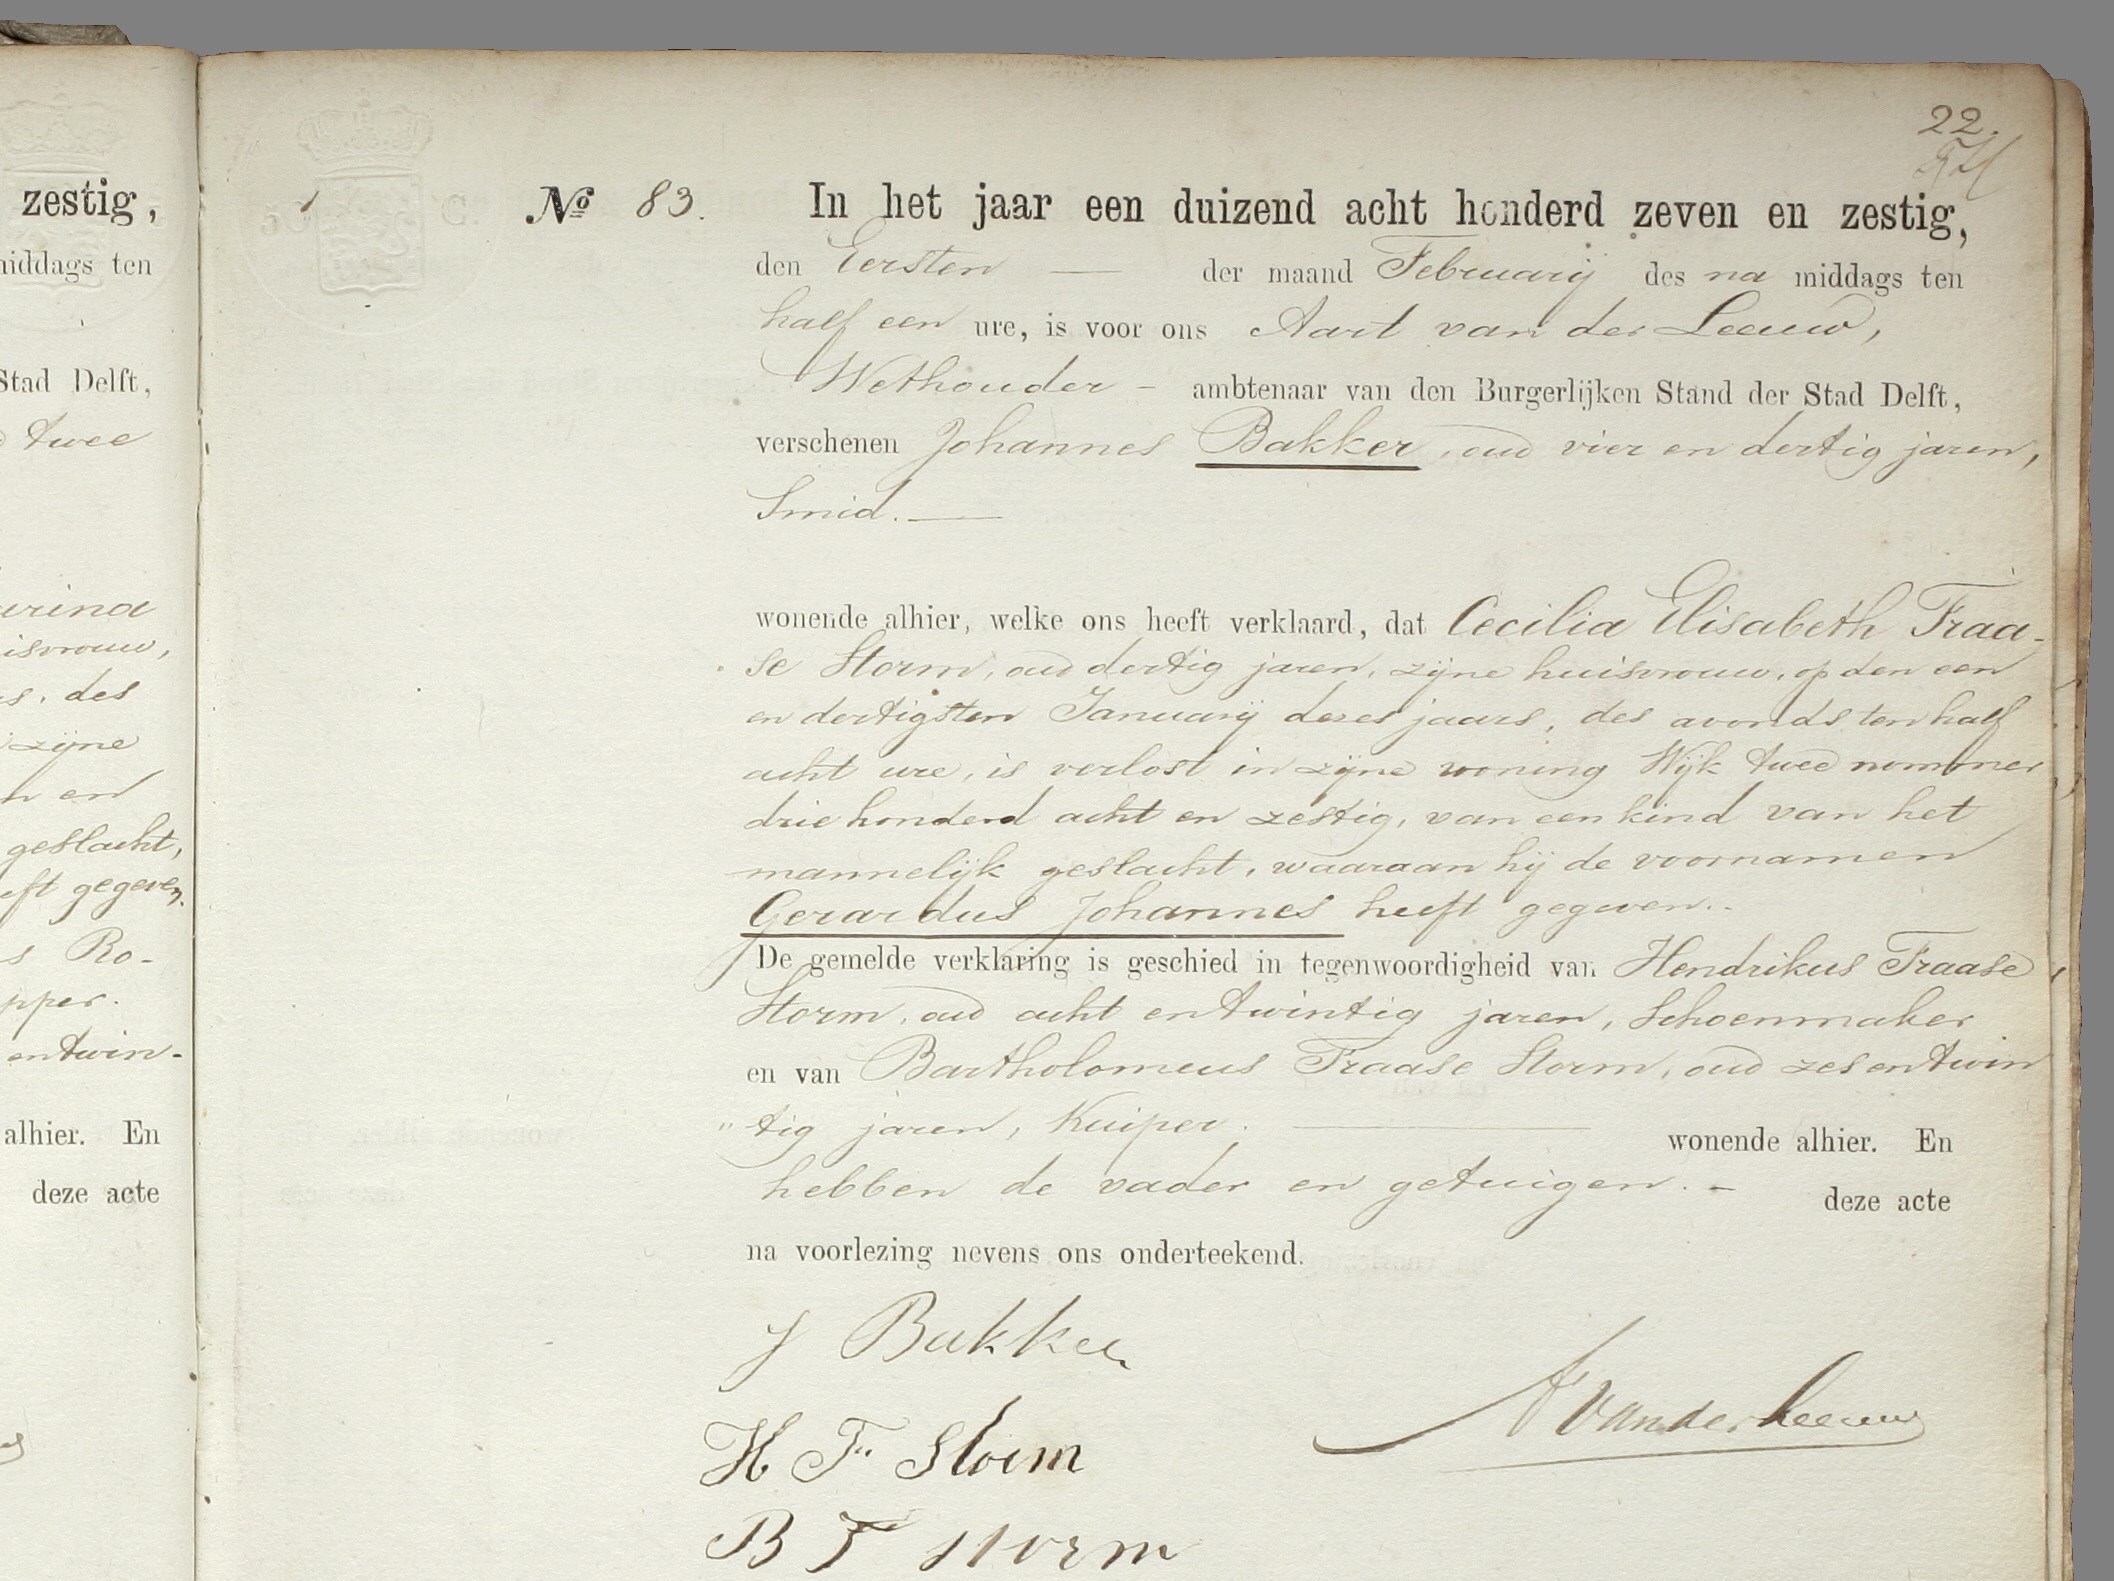 zestig,
middags ten
Stad Delft,
twee
zijne
en
geslacht,
gegeven.
Ro-
entwin-
alhier. En
deze acte
22.
No 83. In het jaar een duizend acht honderd zeven en zestig,
den Eersten — der maand Februarij des na middags ten
half een ure, is voor ons Aart van der Leeuw,
Wethouder - ambtenaar van den Burgerlijken Stand der Stad Delft,
verschenen Johannes Bakker, oud vier en dertig jaren,
Smid. —
wonende alhier, welke ons heeft verklaard, dat Cecilia Elisabeth Fraa-
se Storm, oud dertig jaren, zijne huisvrouw, op den een
en dertigsten Januarij dezes jaars, des avonds ten half
acht ure, is verlost in zijne woning Wijk twee nommer
driehonderd acht en zestig, van een kind van het
mannelijk geslacht, waaraan hij de voornamen
Gerardus Johannes heeft gegeven..
De gemelde verklaring is geschied in tegenwoordigheid van Hendrikus Fraase
Storm, oud acht en twintig jaren, Schoenmaker
en van Bartholomeus Fraase Storm, oud zes en twin
" tig jaren, Kuiper. — wonende alhier. En
hebben de vader en getuigen. - deze acte
na voorlezing nevens ons onderteekend.
J Bakker
A Vander Leeuw
H F. Storm
B F Storm